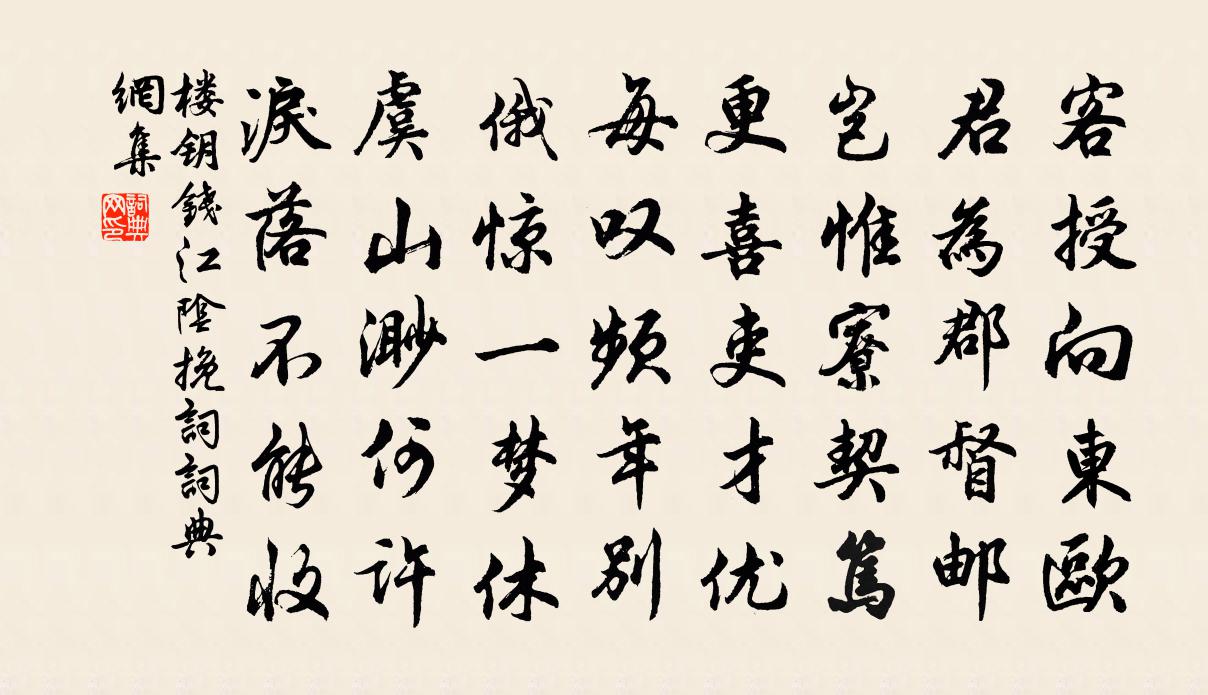 客授向東歐
君為郡督邮
岂惟寮契篤
更喜吏才优
每叹频年别
俄惊一梦休
虞山渺何许
淚落不能收
楼钥錢江陰挽詞詞典
網集
詞典
网印